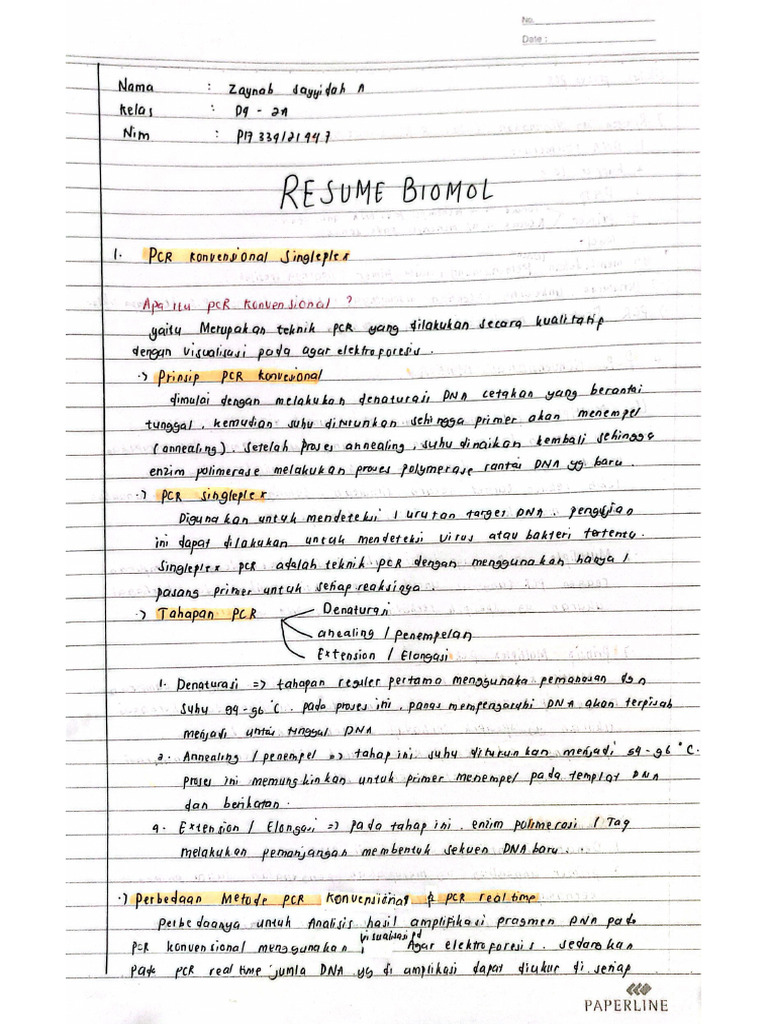 No.
Date :
Nama : Zaynab Sayyidah A
Kelas : D4 - 2A
Nim : P17334121447
RESUME BIOMOL
1. PCR Konvensional Singleplex
Apa itu PCR Konvensional ?
yaitu Merupakan teknik PCR yang dilakukan secara kualitatip
dengan visualisasi pada agar elektroporesis.
·) Prinsip PCR Konvesional
dimulai dengan melakukan denaturasi DNA cetakan yang berantai
tunggal, kemudian suhu diturunkan sehingga primer akan menempel
(annealing). Setelah Proses annealing, suhu dinaikan kembali sehingga
enzim polimerase melakukan proses polymerase rantai DNA yg baru.
·) PCR Singleplex
Digunakan untuk mendeteksi 1 urutan target DNA. pengujian
ini dapat dilakukan untuk mendeteksi virus atau bakteri tertentu.
Singleplex PCR adalah teknik PCR dengan menggunakan hanya 1
pasang primer untuk setiap reaksinya.
·) Tahapan PCR
Denaturasi
anealing / penempelan
Extension / Elongasi
1. Denaturasi => tahapan reguler pertama menggunaka pemanasan dgn
suhu 94-96°C. pada proses ini, panas mempengaruhi DNA akan terpisah
menjadi untai tunggal DNA
2. Annealing / penempel => tahap ini suhu diturunkan menjadi 54-96°C.
proses ini memungkinkan untuk primer menempel pada templat DNA
dan berikatan.
4. Extension / Elongasi => pada tahap ini, enzim polimerasi / Tag
melakukan pemanjangan membentuk sekuen DNA baru.
·) Perbedaan Metode PCR Konvensional & PCR real time
Perbedaanya untuk Analisis hasil amplifikasi pragmen DNA pada
PCR konvensional menggunakan visualisasi pd Agar elektroporesis. sedangkan
pada PCR real time jumla DNA yg di amplikasi dapat diukur di setiap
PAPERLINE